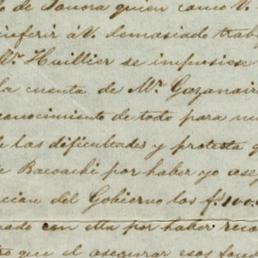 de Sonora quien como V.
inferir á V. demasiado trab
Mr. Huillier se impusiese
la cuenta de Mr. Gazanair
conocimiento de todo para
las dificultades y protesta q
Bacoachi por haber yo ase
cion del Gobierno los f. 100.
ado con por haber
que el asegurar esos